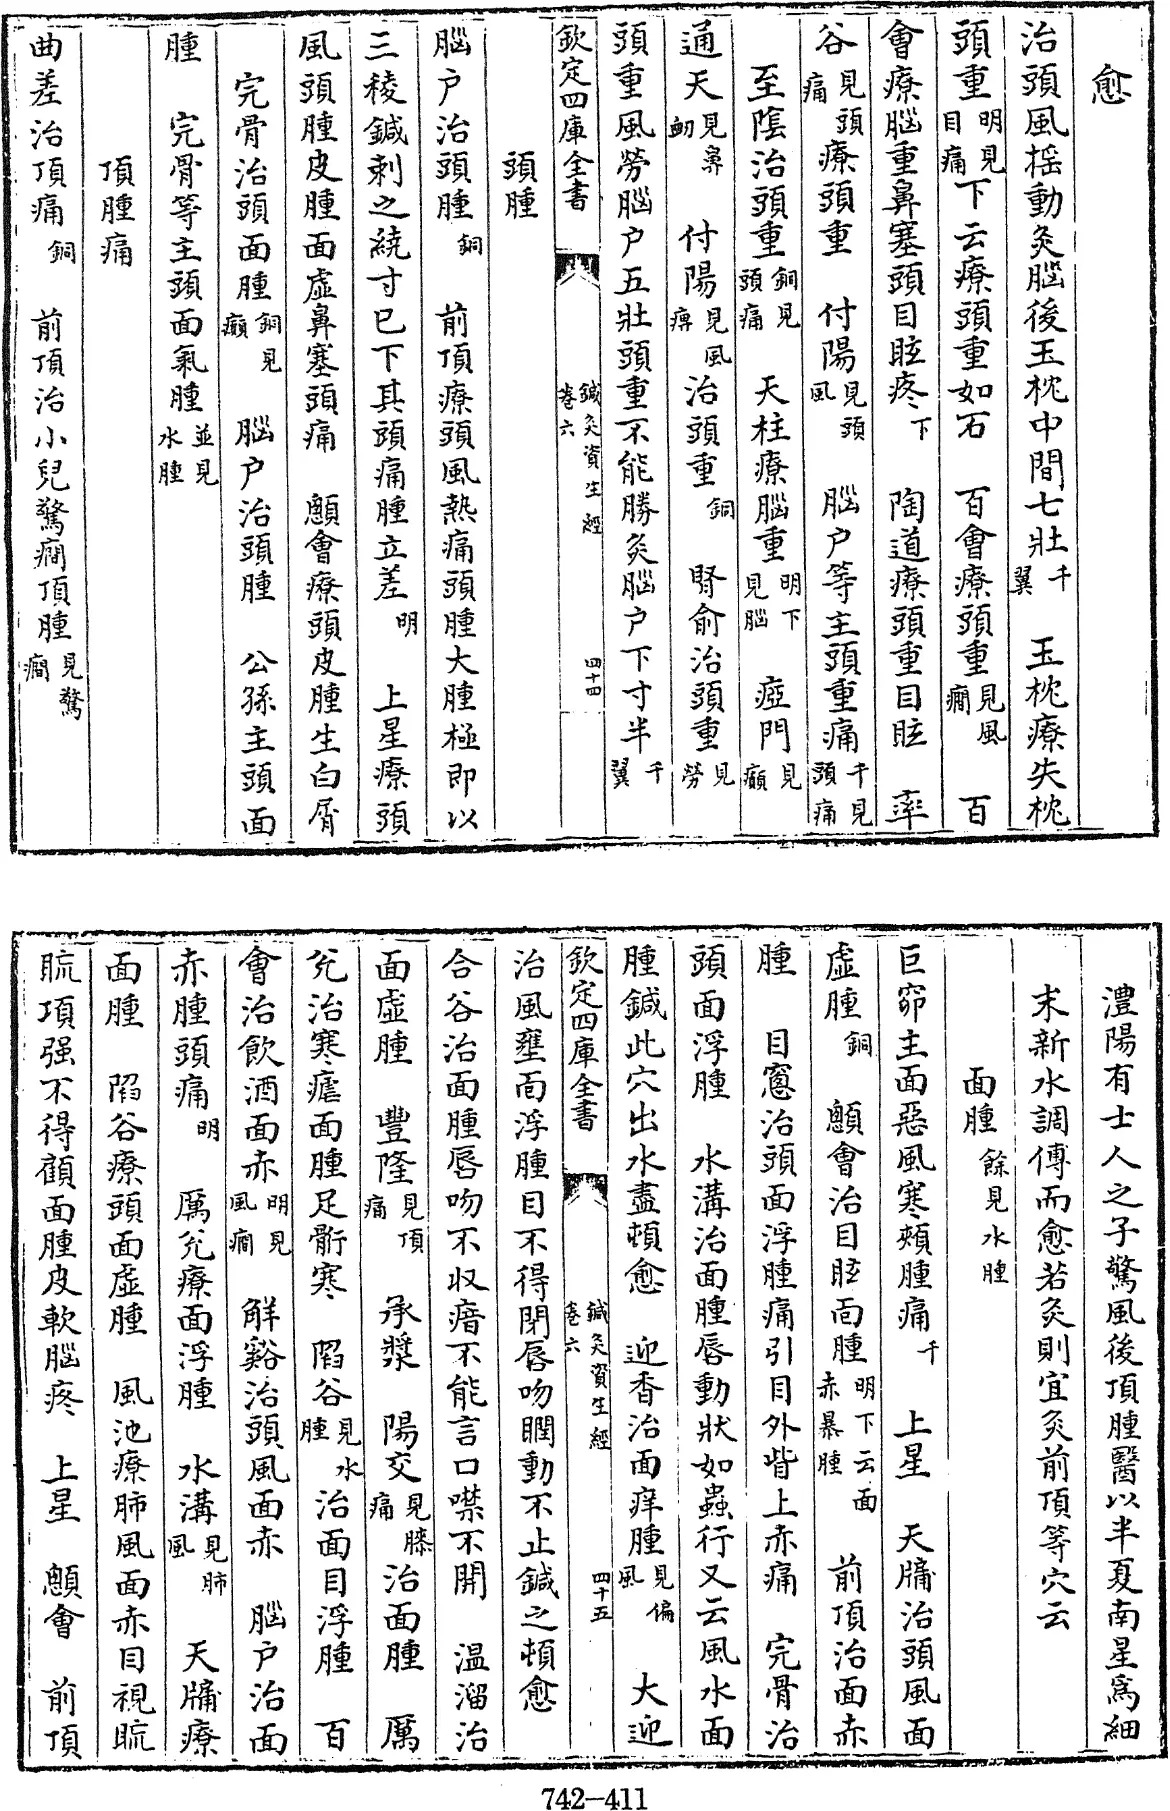 愈
治頭風摇動灸腦後玉枕中間七壯千翼　玉枕療失枕
頭重明見目痛下云療頭重如石　百會療頭重見風癇　百
會療腦重鼻塞頭目眩疼下　陶道療頭重目眩　率
谷見頭痛療頭重　付陽見頭風　腦户等主頭重痛千見頭痛
至陰治頭重銅見頭痛　天柱療腦重明下見腦　瘂門見癲
通天見鼻衂　付陽見風痹治頭重銅　腎俞治頭重見勞
頭重風勞腦户五壯頭重不能勝灸腦户下寸半千翼
欽定四庫全書　鍼灸資生經卷六　四十四
頭腫
腦户治頭腫銅　前頂療頭風熱痛頭腫大腫極即以
三稜鍼刺之繞寸已下其頭痛腫立差明　上星療頭
風頭腫皮腫面虛鼻塞頭痛　顖會療頭皮腫生白屑
完骨治頭面腫銅見癲　腦户治頭腫　公孫主頭面
腫　完骨等主頭面氣腫並見水腫
頂腫痛
曲差治頂痛銅　前頂治小兒驚癇頂腫見驚癇
澧陽有士人之子驚風後頂腫醫以半夏南星爲細
末新水調傅而愈若灸則宜灸前頂等穴云
面腫餘見水腫
巨窌主面惡風寒頰腫痛千　上星　天牖治頭風面
虛腫銅　顖會治目眩面腫明下云面赤暴腫　前頂治面赤
腫　目窻治頭面浮腫痛引目外眥上赤痛　完骨治
頭面浮腫　水溝治面腫唇動狀如蟲行又云風水面
腫鍼此穴出水盡頓愈　迎香治面痒腫見偏風　大迎
欽定四庫全書　鍼灸資生經卷六　四十五
治風壅面浮腫目不得閉唇吻瞤動不止鍼之頓愈
合谷治面腫唇吻不收瘖不能言口噤不開　温溜治
面虛腫　豐隆見頂痛　承漿　陽交見膝痛治面腫　厲
兊治寒瘧面腫足䯒寒　陷谷見水腫治面目浮腫　百
會治飲酒面赤明見風癇　解谿治頭風面赤　腦户治面
赤腫頭痛明　厲兊療面浮腫　水溝見肺風　天牖療
面腫　陷谷療頭面虛腫　風池療肺風面赤目視䀮
䀮項强不得顧面腫皮軟腦疼　上星　顖會　前頂
742-411